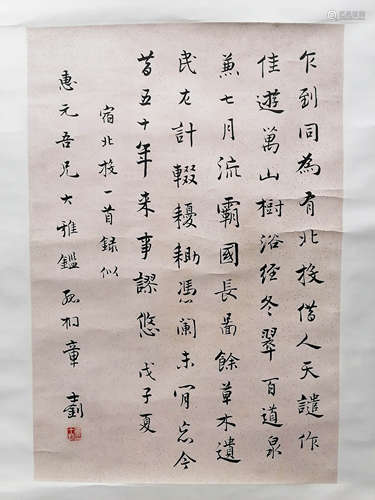 乍到同為有北投借人天譴作
佳遊萬山樹浴經冬翠百道泉
兼七月流霸國長圖餘草木遺
民左計輟耰耡憑闌未用念今
昔五十年来事謬悠 戊子夏
宿北投一首録似
惠元吾兄大雅鑑 孤桐章
士釗